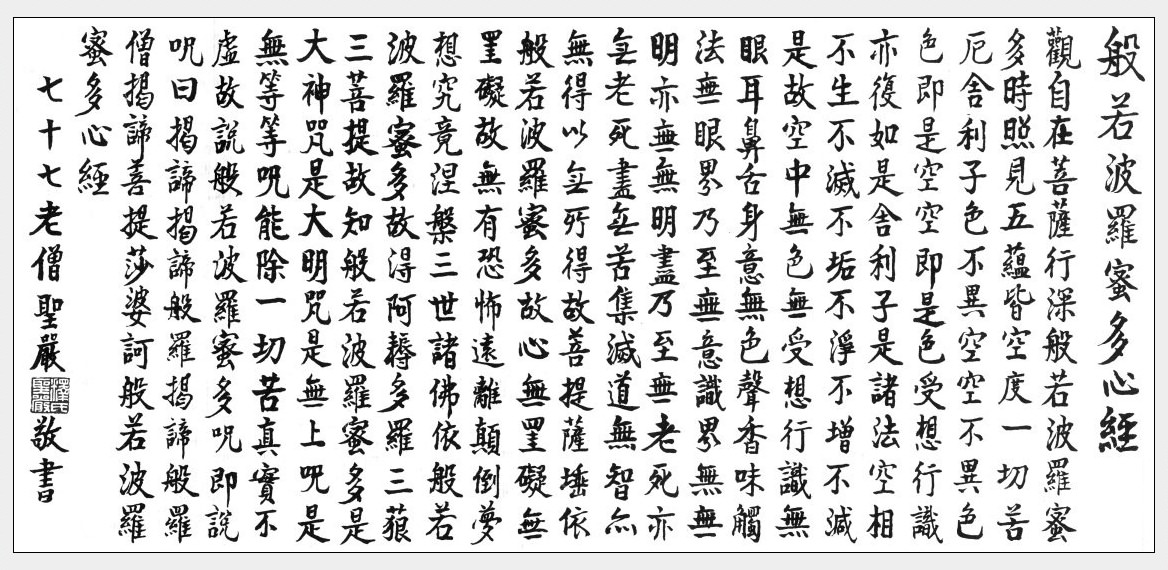 般若波羅蜜多心經
觀自在菩薩行深般若波羅蜜
多時照見五蘊皆空度一切苦
厄舍利子色不異空空不異色
色即是空空即是色受想行識
亦復如是舍利子是諸法空相
不生不滅不垢不淨不增不減
是故空中無色無受想行識無
眼耳鼻舌身意無色聲香味觸
法無眼界乃至無意識界無無
明亦無無明盡乃至無老死亦
無老死盡無苦集滅道無智亦
無得以無所得故菩提薩埵依
般若波羅蜜多故心無罣礙無
罣礙故無有恐怖遠離顛倒夢
想究竟涅槃三世諸佛依般若
波羅蜜多故得阿耨多羅三藐
三菩提故知般若波羅蜜多是
大神咒是大明咒是無上呪是
無等等呪能除一切苦真實不
虛故說般若波羅蜜多呪即說
呪曰揭諦揭諦般羅揭諦般羅
僧揭諦菩提莎婆訶般若波羅
蜜多心經
七十七老僧聖嚴敬書